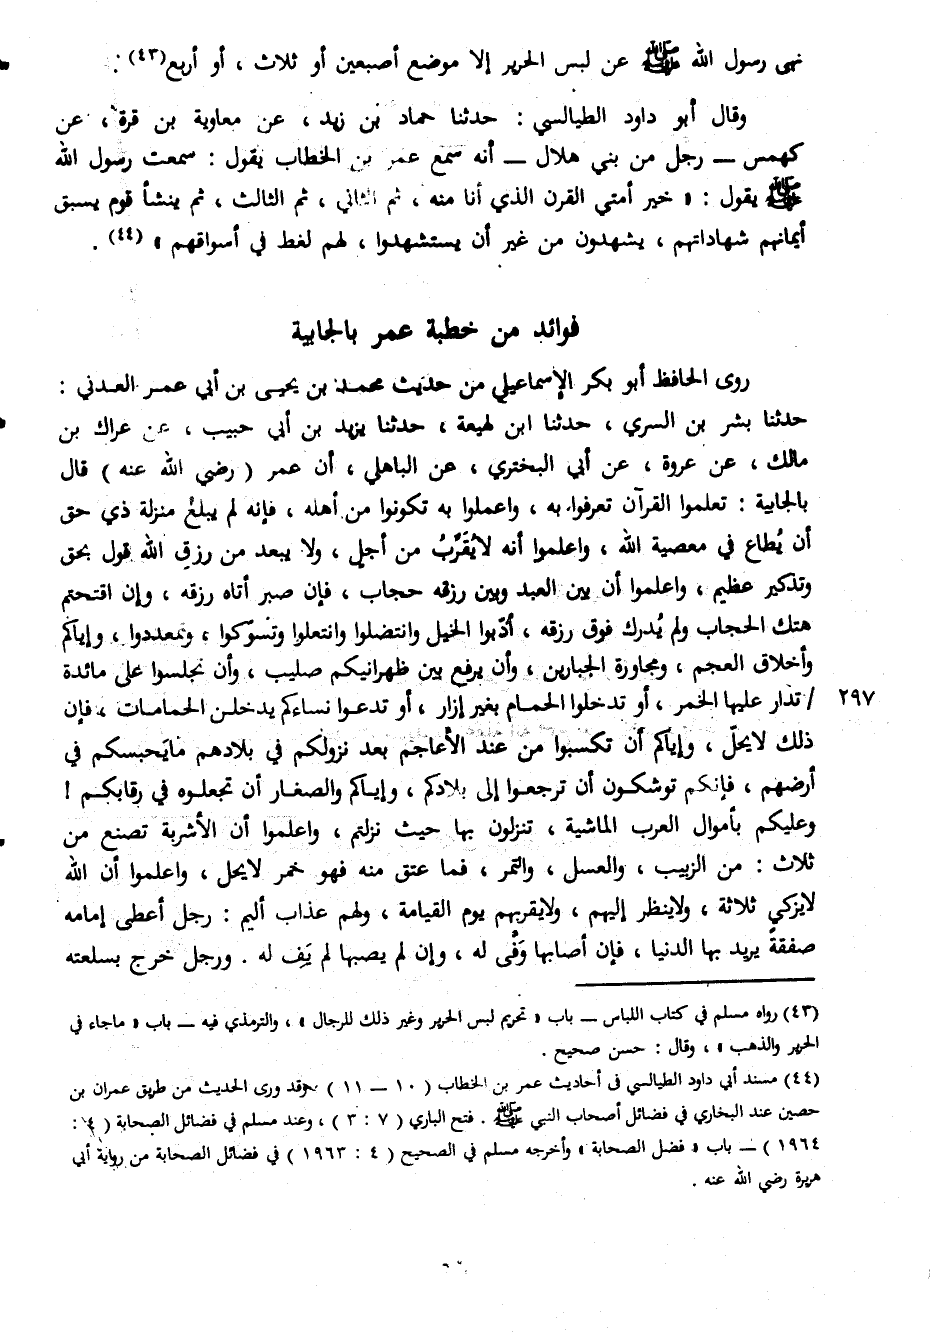 نهى رسول الله ﷺ عن لبس الحرير إلا موضع أصبعين أو ثلاث ، أو أربع(٤٣) .
وقال أبو داود الطيالسي : حدثنا حماد بن زيد ، عن معاوية بن قرة ، عن
كهمس ــ رجل من بني هلال ــ أنه سمع عمر بن الخطاب يقول : سمعت رسول الله
ﷺ يقول : « خير أمتي القرن الذي أنا منه ، ثم الثاني ، ثم الثالث ، ثم ينشأ قوم يسبق
أيمانهم شهاداتهم ، يشهدون من غير أن يستشهدوا ، لهم لغط في أسواقهم » (٤٤) .
فوائد من خطبة عمر بالجابية
روى الحافظ أبو بكر الإسماعيلي من حديث محمد بن يحيى بن أبي عمر العدني :
حدثنا بشر بن السري ، حدثنا ابن لهيعة ، حدثنا يزيد بن أبي حبيب ، عن عراك بن
مالك ، عن عروة ، عن أبي البختري ، عن الباهلي ، أن عمر ( رضي الله عنه ) قال
بالجابية : تعلموا القرآن تعرفوا به ، واعملوا به تكونوا من أهله ، فإنه لم يبلغْ منزلة ذي حق
أن يُطاع في معصية الله ، واعلموا أنه لايُقَرِّبُ من أجلٍ ، ولا يبعد من رزقِ الله قول بحق
وتذكير عظيم ، واعلموا أن بين العبد وبين رزقه حجاب ، فإن صبر أتاه رزقه ، وإن اقتحم
هتك الحجاب ولم يُدرك فوق رزقه ، أدّبوا الخيل وانتضلوا وانتعلوا وتسوّكوا ، وتمعددوا ، وإياكم
وأخلاق العجم ، ومجاورة الجبارين ، وأن يرفع بين ظهرانيكم صليب ، وأن تجلسوا على مائدة
٢٩٧ / تدار عليها الخمر ، أو تدخلوا الحمام بغير إزار ، أو تدعوا نساءكم يدخلن الحمامات ، فإن
ذلك لايحلّ ، وإياكم أن تكسبوا من عند الأعاجم بعد نزولكم في بلادهم مايَحبسكم في
أرضهم ، فإنكم توشكون أن ترجعوا إلى بلادكم ، وإياكم والصغار أن تجعلوه في رقابكم !
وعليكم بأموال العرب الماشية ، تنزلون بها حيث نزلتم ، واعلموا أن الأشربة تصنع من
ثلاث : من الزبيب ، والعسل ، والتمر ، فما عتق منه فهو خمر لايحل ، واعلموا أن الله
لايزكي ثلاثة ، ولاينظر إليهم ، ولايقربهم يوم القيامة ، ولهم عذاب أليم : رجل أعطى إمامه
صفقةً يريد بها الدنيا ، فإن أصابها وَفّى له ، وإن لم يصبها لم يَفِ له . ورجل خرج بسلعته
(٤٣) رواه مسلم في كتاب اللباس ــ باب « تحريم لبس الحرير وغير ذلك للرجال » ، والترمذي فيه ــ باب « ماجاء في
الحرير والذهب » ، وقال : حسن صحيح .
(٤٤) مسند أبي داود الطيالسي في أحاديث عمر بن الخطاب ( ١٠ ــ ١١ ) وقد ورى الحديث من طريق عمران بن
حصين عند البخاري في فضائل أصحاب النبي ﷺ . فتح الباري ( ٧ : ٣ ) ، وعند مسلم في فضائل الصحابة ( ٤ :
١٩٦٤ ) ــ باب « فضل الصحابة » وأخرجه مسلم في الصحيح ( ٤ : ١٩٦٣ ) في فضائل الصحابة من رواية أبي
هريرة رضي الله عنه .